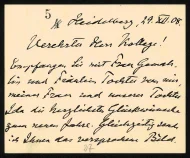 5
Heidelberg, 29. XII. 08.
Verehrter Herr Kollege!
Empfangen Sie mit Frau Gemah-
lin und Fräulein Tochter von mir,
meiner Frau und unserer Tochter
Ida die herzlichsten Glückwünsche
zum neuen Jahre. Gleichzeitig send
ich Ihnen das versprochene Bild.